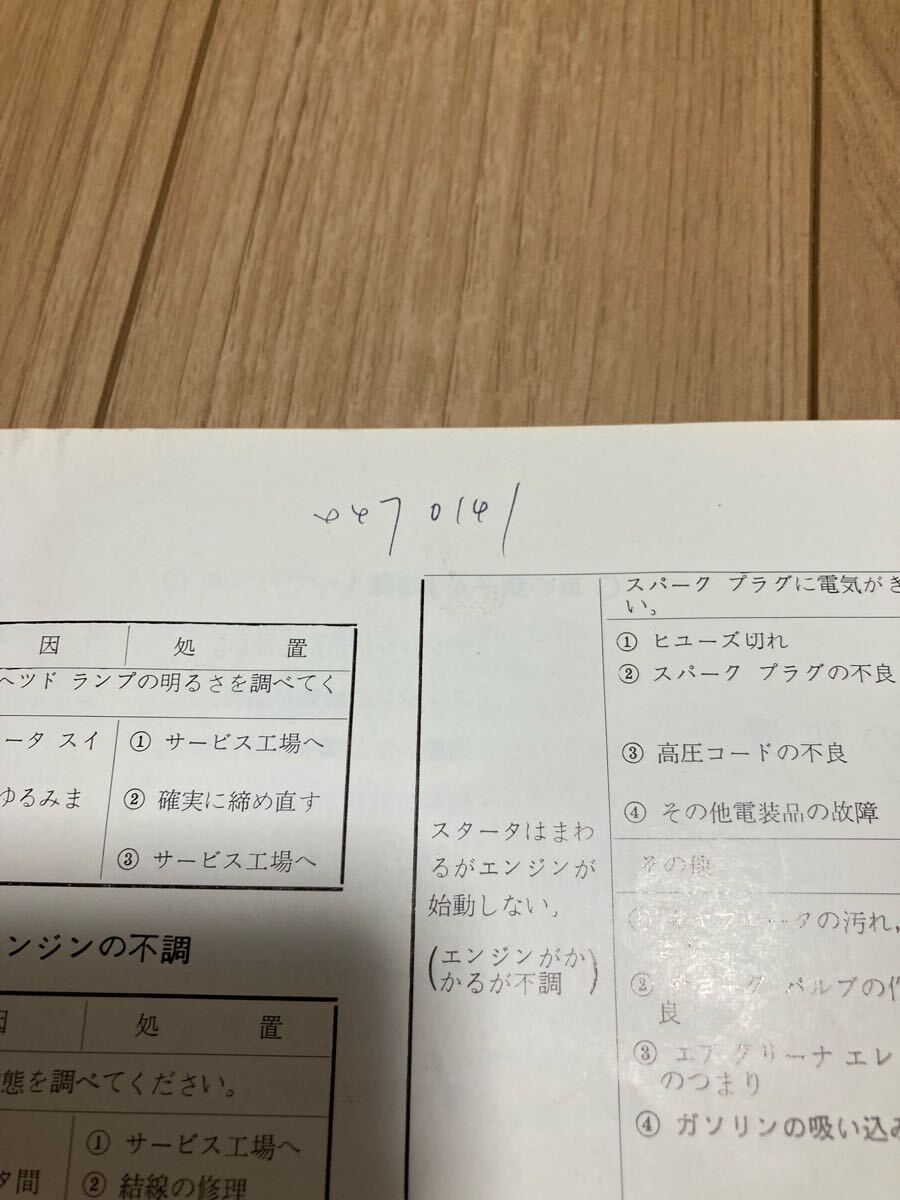 047 0141
因 処 置
ヘツド ランプの明るさを調べてく
ータ スイ ① サービス工場へ
ゆるみま ② 確実に締め直す
③ サービス工場へ
ンジンの不調
因 処 置
態を調べてください。
① サービス工場へ
タ間 ② 結線の修理
スパーク プラグに電気がき
い。
① ヒユーズ切れ
② スパーク プラグの不良
③ 高圧コードの不良
④ その他電装品の故障
スタータはまわ
るがエンジンが
始動しない。
(エンジンがか
かるが不調)
その他
① キヤブレータの汚れ,
② チヨーク バルブの作
良
③ エア クリーナ エレ
のつまり
④ ガソリンの吸い込み